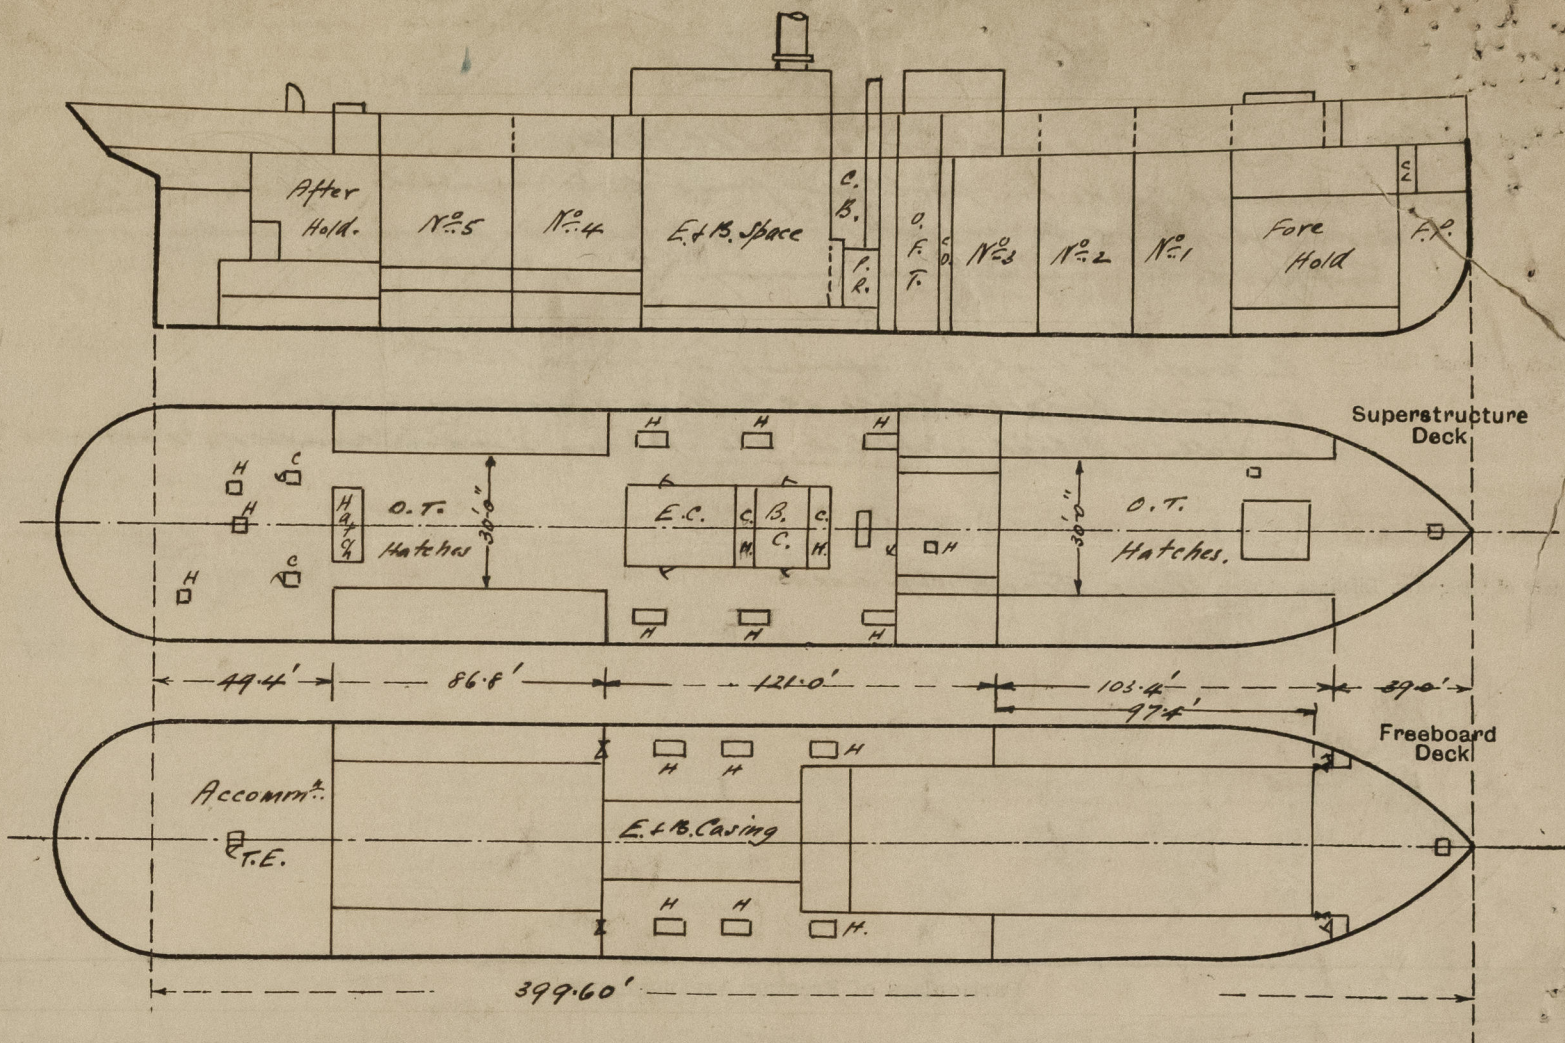 After
Hold.
Nº5
Nº4
E.&B. Space
C.
B.
P.
R.
O.
F.
T.
C
D.
Nº3
Nº2
Nº1
Fore
Hold
C
L
F.P.
Superstructure
Deck
H
H
H
H
H
C
H
Hatch
O.T.
Hatches
30'0"
E.C.
C.
H.
B.
C.
C.
H.
H
O.T.
Hatches.
30'0"
C
H
H
H
H
49.4'
86.8'
121.0'
103.4'
39.0'
97.4'
Freeboard
Deck
H
H
H
Accommn.
T.E.
E.&B. Casing
H
H
H.
399.60'